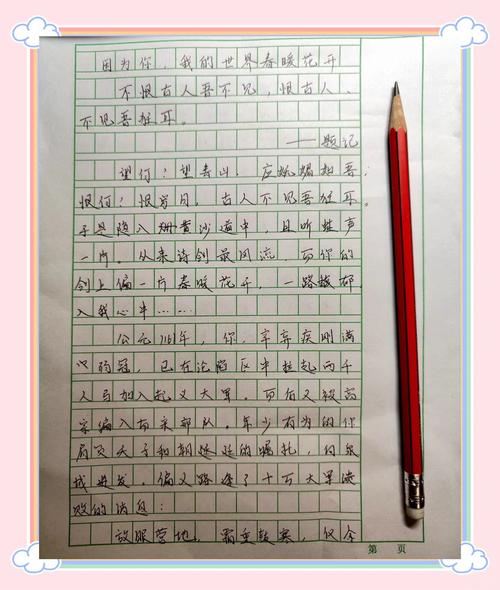 因为你，我的世界春暖花开
不恨古人吾不见，恨古人、
不见吾狂耳。
——题记
望何？望青山，应妩媚相吾；
恨何？恨岁月，古人不见吾狂耳。
于是隐入黄沙道中，且听蛙声
一片。从来诗剑最风流，而你的
剑上偏一片春暖花开，一路越都
入我心半……
公元1161年，你，辛弃疾刚满
以弱冠，已在沦陷区中拉起两千
人马加入起义大军。而后又被高
宗编入南宋部队。年少有为的你
肩负天子和朝廷的嘱托，向泉
城进发。偏又路逢了十万大军溃
败的消息：
敌服营地，霜重鼓寒，仅令
第 页